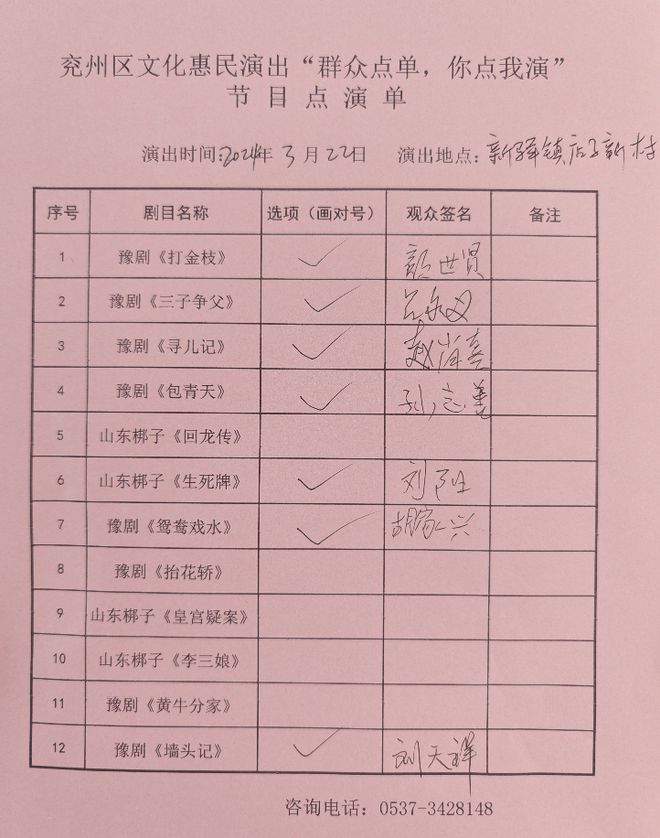 兖州区文化惠民演出“群众点单，你点我演”
节目点演单
演出时间：2024年3月22日 演出地点：新驿镇店子新村
序号 剧目名称 选项（画对号） 观众签名 备注
1 豫剧《打金枝》 ✓ 颜世贤
2 豫剧《三子争父》 ✓
3 豫剧《寻儿记》 ✓ 赵肖喜
4 豫剧《包青天》 ✓ 孙志善
5 山东梆子《回龙传》
6 山东梆子《生死牌》 ✓ 刘胜
7 豫剧《鸳鸯戏水》 ✓ 胡家兴
8 豫剧《抬花轿》
9 山东梆子《皇宫疑案》
10 山东梆子《李三娘》
11 豫剧《黄牛分家》
12 豫剧《墙头记》 ✓ 刘天祥
咨询电话：0537-3428148